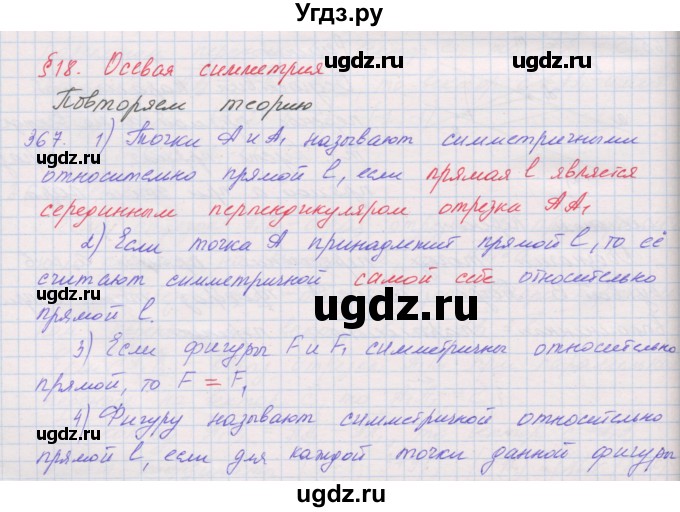 Угдз.ру
§18. Осевая симметрия
Повторяем теорию
367. 1) Точки A и A₁ называют симметричными
относительно прямой l, если прямая l является
серединным перпендикуляром отрезка AA₁
2) Если точка A принадлежит прямой l, то её
считают симметричной самой себе относительно
прямой l.
3) Если фигуры F и F₁ симметричны относительно
прямой, то F = F₁
4) Фигуру называют симметричной относительно
прямой l, если для каждой точки данной фигуры
ugdz.ru
ugdz.ru
ugdz.ru
ugdz.ru
ugdz.ru
ugdz.ru
ugdz.ru
ugdz.ru
ugdz.ru
ugdz.ru